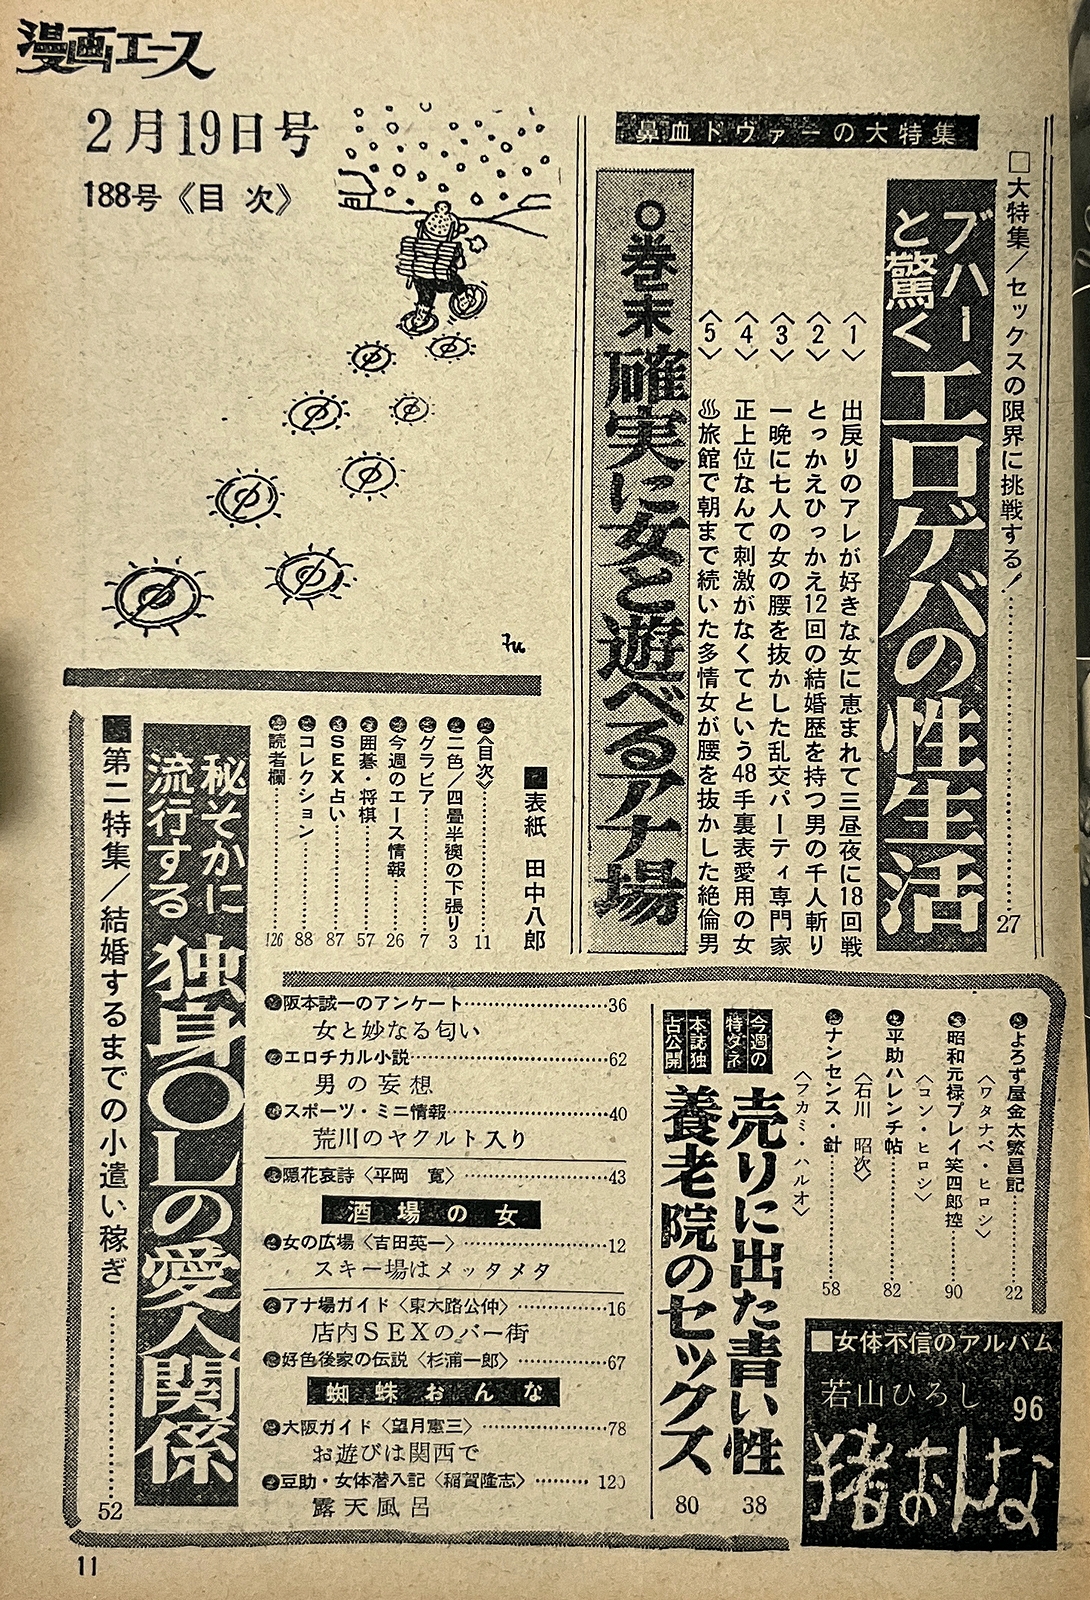 漫画エース
2月19日号
188号《目次》
鼻血ドヴァーの大特集
□大特集/セックスの限界に挑戦する!……27
ブハーと驚く
エロゲバの性生活
〈1〉出戻りのアレが好きな女に恵まれて三昼夜に18回戦
〈2〉とっかえひっかえ12回の結婚歴を持つ男の千人斬り
〈3〉一晩に七人の女の腰を抜かした乱交パーティ専門家
〈4〉正上位なんて刺激がなくてという48手裏表愛用の女
〈5〉♨旅館で朝まで続いた多情女が腰を抜かした絶倫男
○巻末 確実に女と遊べるアナ場
■表紙 田中八郎
〈目次〉……11
二色/四畳半襖の下張り 3
グラビア……7
今週のエース情報……26
囲碁・将棋……57
SEX占い……87
コレクション……88
読者欄……126
よろず屋金太繁昌記……22
〈ワタナベ・ヒロシ〉
昭和元禄プレイ笑四郎控……90
〈コン・ヒロシ〉
平助ハレンチ帖……82
〈石川 昭次〉
ナンセンス・針……58
〈フカミ・ハルオ〉
今週の特ダネ
売りに出た青い性 38
本誌独占公開
養老院のセックス 80
■女体不信のアルバム
若山ひろし 96
猪おんな
阪本誠一のアンケート……36
女と妙なる匂い
エロチカル小説……62
男の妄想
スポーツ・ミニ情報……40
荒川のヤクルト入り
隠花哀詩〈平岡 寛〉……43
酒場の女
女の広場〈吉田英一〉……12
スキー場はメッタメタ
アナ場ガイド〈東大路公仲〉……16
店内SEXのバー街
好色後家の伝説〈杉浦一郎〉……67
蜘蛛おんな
大阪ガイド〈望月憲三〉……78
お遊びは関西で
豆助・女体潜入記〈稲賀隆志〉……120
露天風呂
秘そかに流行する
独身OLの愛人関係
■第二特集/結婚するまでの小遣い稼ぎ……52
11